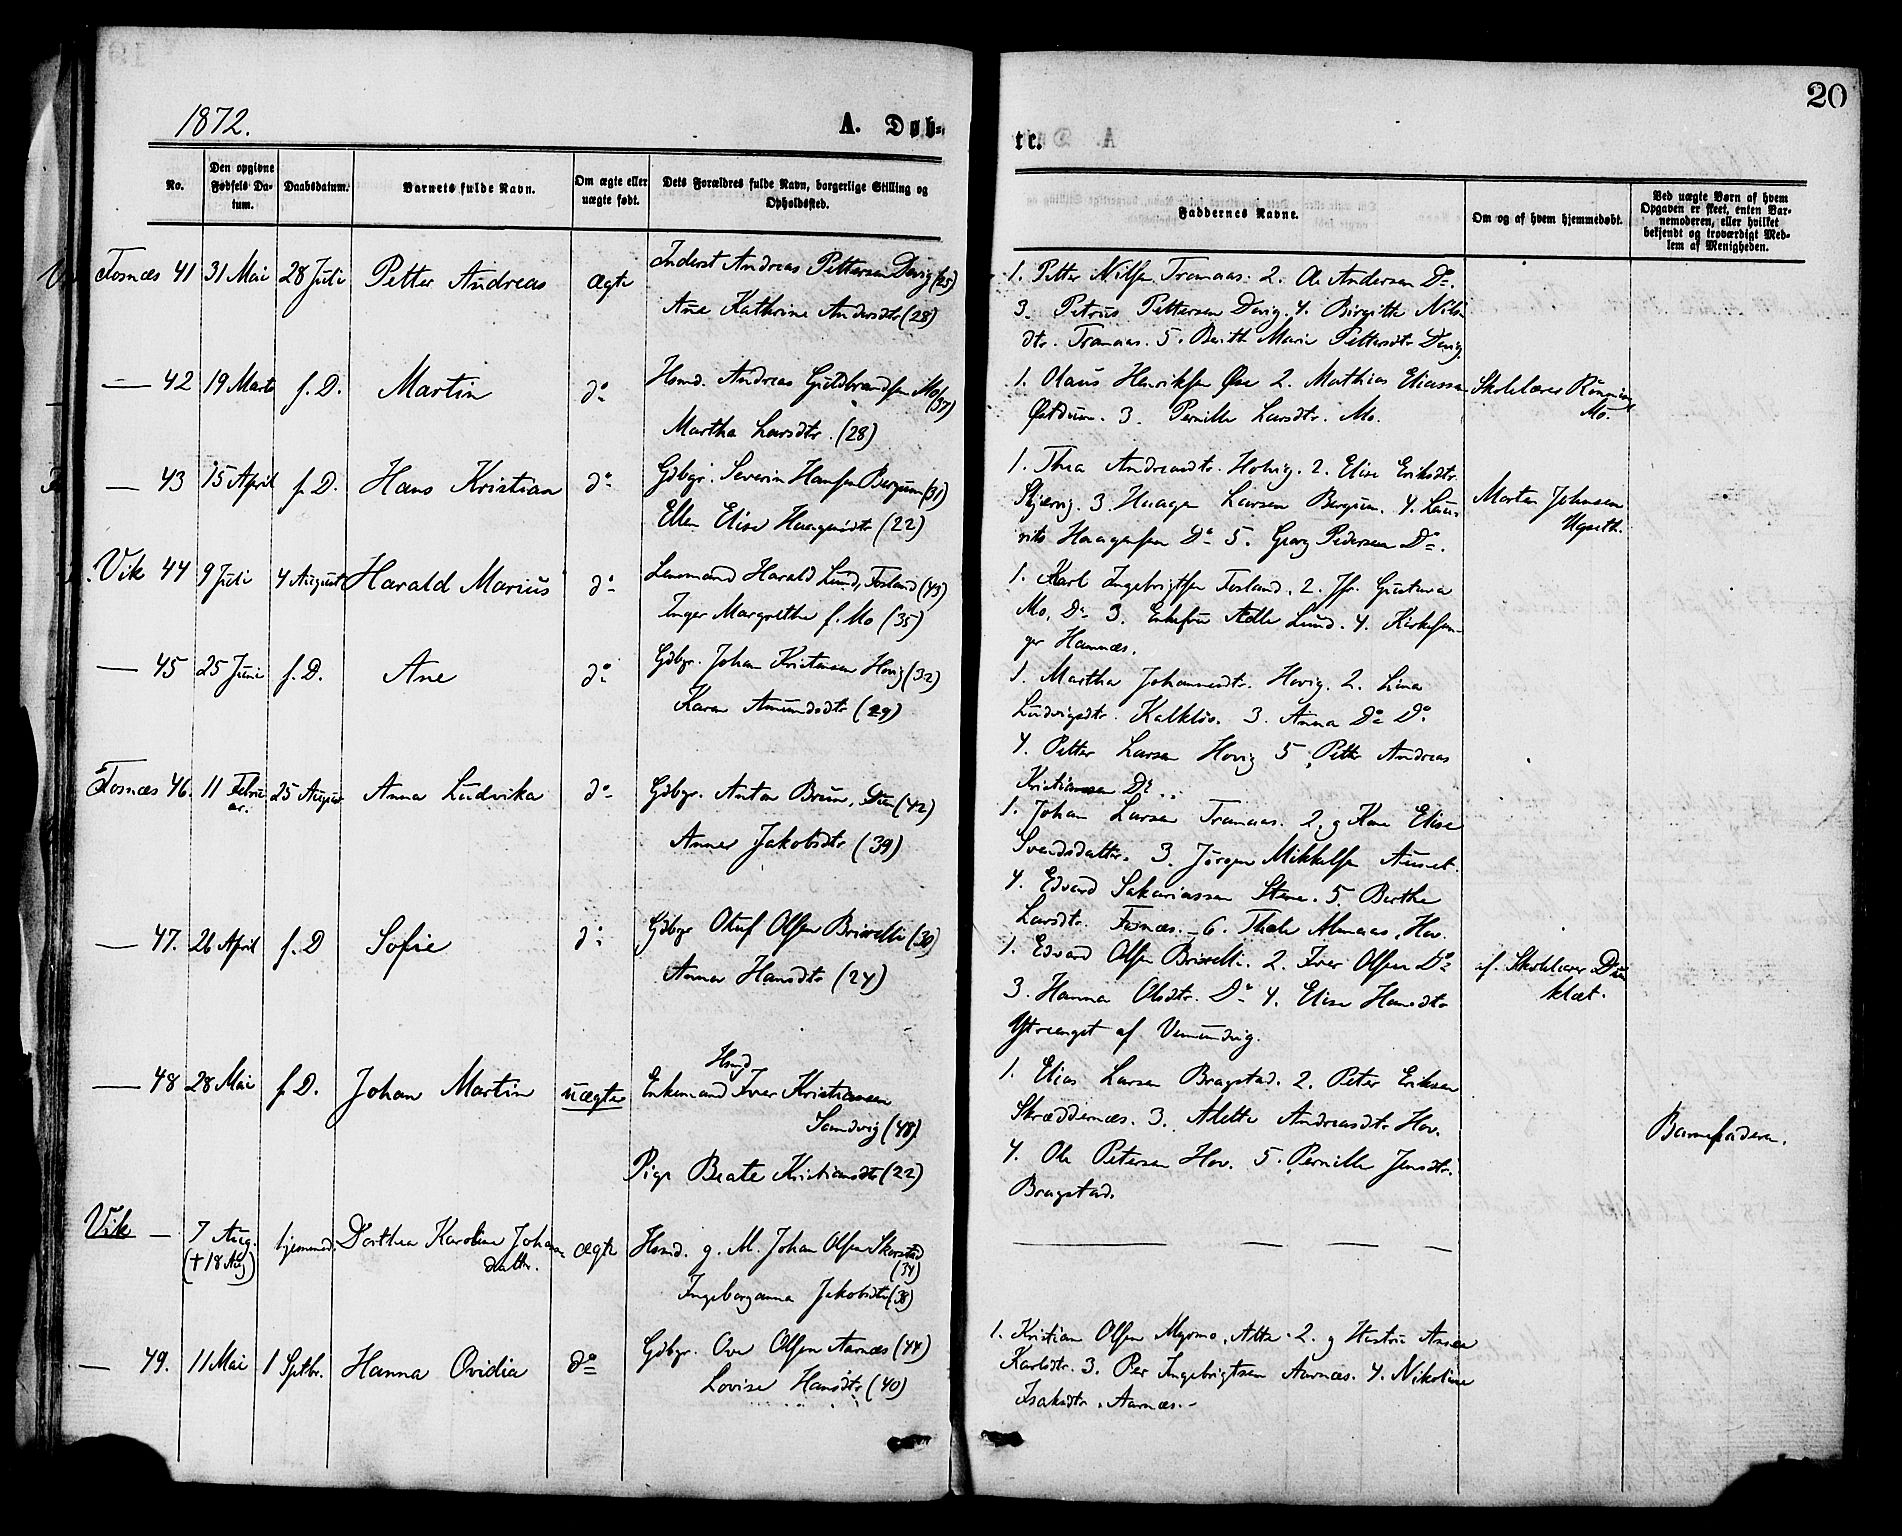 1872.
A. Døb-
No.
Den opgivne Fødsels Da-tum.
Daabsdatum.
Barnets fulde Navn.
Om ægte eller uægte født.
Dets Forældres fulde Navn, borgerlige Stilling og Opholdssted.
Fosnæs 41 31 Mai 28 Juli Petter Andreas ægte Inderst Andreas Pettersen Devig (25)
Ane Kathrine Andersdtr (28)
— 42 19 Marts f. D. Martin do Hsmd. Andreas Guldbrandsen Mo (37)
Martha Larsdtr. (28)
— 43 15 April f. D. Hans Kristian do Gdbgr. Severin Hansen Bergum (31)
Ellen Elise Haagensdtr (22)
Vik 44 9 Juli 4 August Harald Marius do Lensmand Harald Lund, Fosland (43)
Inger Margrethe f. Mo (35)
— 45 25 Juni f. D. Ane do Gdbgr. Johan Kristensen Hovig (32)
Karen Amundsdtr (29)
Fosnæs 46. 11 Febru-ar. 25 August Anna Ludvika do Gdbgr. Anton Brun, Dun (42)
Anner Jakobsdtr (39)
— 47. 26 April f. D Sofie do Gdbgr Oluf Olsen Brisvelli (30)
Anna Hansdtr (24)
— 48 28 Mai f. D. Johan Martin uægte Hsmd
Enkemand Iver Kristiansen
Sandvig (48).
Pige Beate Kristiansdtr (22)
Vik — 7 Aug. (+18 Aug) hjemmed. Dorthea Karoline Johan-
datter. ægte Hsmd. g. M. Johan Olsen Skorstad
(34)
Ingeborganna Jakobsdtr (38)
— 49. 11 Mai 1 Septbr. Hanna Ovidia do Gdbgr. Ove Olsen Aarnæs (44)
Lovise Hansdtr (40)
20
te.
Faddernes Navne.
Om og af hvem hjemmedøbt.
Ved uægte Børn af hvem Opgaven er skeet, enten Bar-nemoderen, eller hvilket bekjendt og troværdigt Med-lem af Menigheden.
1. Petter Nilsen Tranaas. 2. Ole Andersen Do.
3. Petrus Pettersen Devig. 4. Birgitte Nils-
dtr. Tranaas. 5. Berith Marie Pettersdtr Devig.
1. Olaus Henriksen Øie 2. Mathias Eliassen Skolelærer Rønning
Østduun. 3. Pernille Larsdtr. Mo. Mo.
1. Thea Andreasdtr. Hovig. 2. Elise Eriksdtr.
Skjærvig. 3. Haagen Larsen Bergum. 4. Lau- Morten Johnsen
rits Haagensen Do 5. Georg Pedersen Do. Ugseth.
1. Karl Ingebrigtsen Fosland. 2. Jfr. Gustava
Mo, Do 3. Enkefru Adle Lund. 4. Kirkesan-
ger Hamnæs.
1. Martha Johannesdtr. Hovig. 2. Lina
Ludvigsdtr. Kalkløv. 3. Anna Do Do.
4. Petter Larsen Hovig 5. Petter Andreas
Kristiansen Do.
1. Johan Larsen Tranaas. 2. g Kone Elise
Svendsdatter. 3. Jørgen Mikkelsen Aunet.
4. Edvard Sakariassen Stene. 5. Berthe
Larsdtr. Fosnæs. 6. Thale Almaas, Hov.
1. Edvard Olsen Brisvelli. 2. Iver Olsen Do af. Skolelærer Dun
3. Hanna Olsdtr. Do 4. Elise Hansdtr klæt.
Ytreenget af Vemundvig.
1. Elias Larsen Bragstad. 2. Peter Eriksen
Skræddernæs. 3. Alette Andreasdtr Hov. Barnefaderen.
4. Ole Petersen Hov. 5. Pernille Jensdtr.
Bragstad.
1. Kristian Olsen Myrmo, Alte. 2. g Hustru Anna
Karlsdtr. 3. Per Ingebrigtsen Aarnæs. 4. Nikoline
Isaksdtr. Aarnæs.